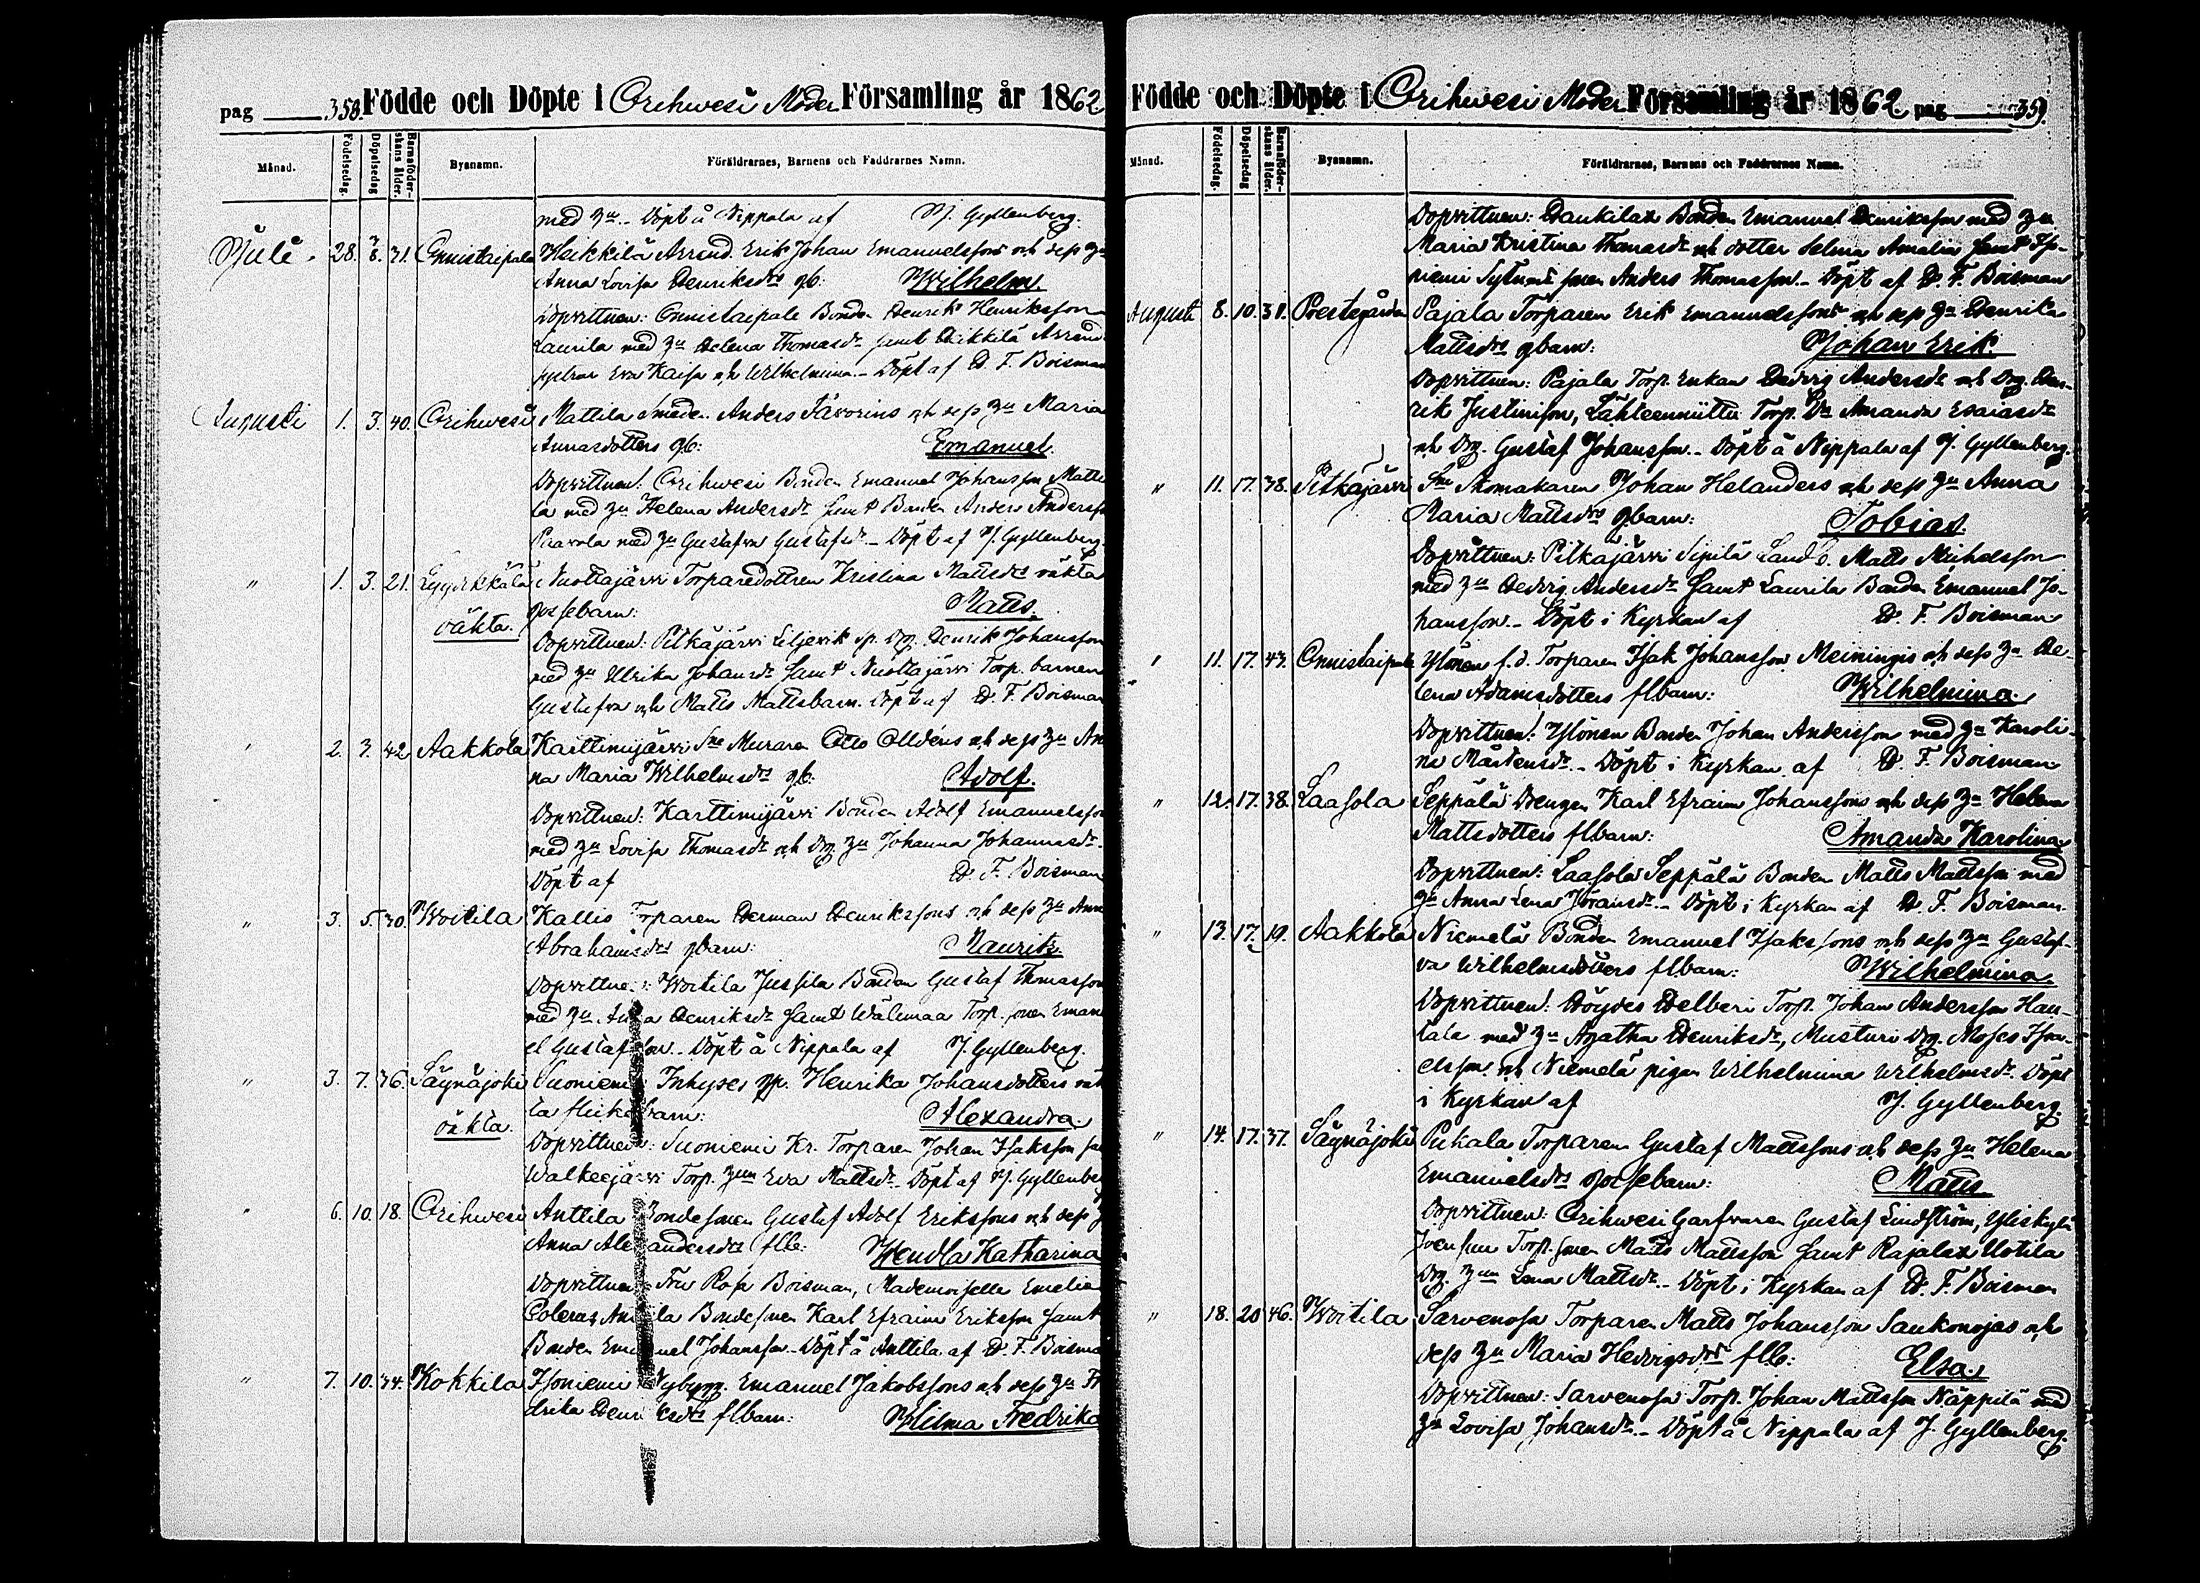 pag 358. Födde och Döpte i Orihwesi Moder Församling år 1862
Månad. Födelsedag. Döpelsedag Barnaföder-skans ålder. Bysnamn. Föräldrarnes, Barnens och Faddrarnes Namn.
med hu. Döpt å Nippala af J. Gyllenberg.
Juli. 28. 3/8. 31. Onnistaipale Heikkilä Arrend. Erik Johan Emanuelssons och dess hu
Anna Lovisa Henriksdrs gb: Wilhelm.
Dopvittnen: Onnistaipale Bonden Henrik Henriksson
Laurila med hu Helena Thomasdr samt Heikkilä Arrend.
Eva Kaisa och Wilhelmina. Döpt af D. F. Boisman
Augusti 1. 3. 40. Orihwesi Mattila Smeden Anders Favorins och dess hu Maria
Annasdotters gb: Emanuel.
Dopvittnen: Orihwesi Bonden Emanuel Johansson Matti
la med hu Helena Andersdr samt Bonden Anders Anderss
Paavola med hu Gustafva Gustafsdr. Döpt af J. Gyllenberg.
" 1. 3. 21. Eyyrikkälä Nuottajärvi Torparedottren Kristina Mattsdrs oäkta
oäkta. gossebarn: Matts.
Dopvittnen: Pitkäjärvi Henrik Johansson
med hu Ulrika Johansdr samt Nuottajärvi Torp. barnen
Gustafva och Matts Mattsbarn. Döpt af D. F. Boisman
" 2. 3. 42. Aakkola Karttimijärvi Sne Muraren Otto Olldéns och dess hu An
na Maria Wilhelmsdrs gb: Adolf.
Dopvittnen: Karttimijärvi Bonden Adolf Emanuelsson
med hu Lovisa Thomasdr och Drg. hu Johanna Johannesdr.
Döpt af D. F. Boisman
" 3. 5. 30. Woitila Kallis Torparen Herman Henrikssons och dess hu Anna
Abrahamsdrs gbarn: Mauritz.
Dopvittnen: Woitila Jussila Bonden Gustaf Thomasson
med hu Anna Henriksdr samt Wälimaa Torp. sonen Emanu
el Gustafsson. Döpt å Nippala af J. Gyllenberg.
" 3. 7. 36. Säynäjoki Suoniemi Inhyses qp. Henrika Johansdotters oäk
oäkta. ta flickebarn: Alexandra.
Dopvittnen: Suoniemi Kr. Torparen Johan Isaksson sa
Walkeejärvi Torp. hun Eva Mattsdr. Döpt af J. Gyllenberg
" 6. 10. 18. Orihwesi Anttila Bondesonen Gustaf Adolf Erikssons och dess h
Anna Alexandersdrs flb: Wendla Katharina
Dopvittnen: Fru Rosa Boisman, Mademoiselle Emelie
Anttila Bondesonen Karl Efraim Eriksson samt
Bonden Emanuel Johansson. Döpt å Anttila af D. F. Boisma
" 7. 10. 34. Kokkila Isoniemi Nybygg. Emanuel Jakobssons och dess hu Fr
drika Henriksdrs flbarn: Hilma Fredrika
Födde och Döpte i Orihwesi Moder Församling år 1862 pag 359.
Månad. Födelsedag. Döpelsedag Barnaföder-skans ålder. Bysnamn. Föräldrarnes, Barnens och Faddrarnes Namn.
Dopvittnen: Haukilax Bonden Emanuel Henriksson med hu
Maria Kristina Thomasdr och dotter Selma Amalia samt Iso-
niemi sonen Anders Thomasson. Döpt af D. F. Boisman
Augusti 8. 10. 31. Prestegården Pajala Torparen Erik Emanuelssons och dess hu Henrika
Mattsdrs gbarn: Johan Erik.
Dopvittnen: Pajala Torp. Enkan Hedvig Andersdr och Drg. Hen-
rik Justinson, Lähteenmütti Torp. Dr Amanda Esaiasdr
och Drg. Gustaf Johansson. Döpt å Nippala af J. Gyllenberg.
" 11. 17. 38. Pitkäjärvi Sne Skomakaren Johan Helanders och dess hu Anna
Maria Mattsdrs gbarn: Tobias.
Dopvittnen: Pitkäjärvi Sipilä Landb. Matts Michelsson
med hu Hedvig Andersdr samt Laurila Bonden Emanuel Jo-
hansson. Döpt i Kyrkan af D. F. Boisman
" 11. 17. 43. Onnistaipale Ylönen f.d. Torparen Isak Johansson Meiningis och dess hu He-
lena Adamsdotters flbarn: Wilhelmina.
Dopvittnen: Ylönen Bonden Johan Andersson med hu Karoli-
na Mårtensdr. Döpt i Kyrkan af D. F. Boisman
" 12. 17. 38. Laasola Seppälä Drengen Karl Efraim Johanssons och dess hu Helena
Mattsdotters flbarn: Amanda Karolina.
Dopvittnen: Laasola Seppälä Bonden Matts Mattsson med
hu Anna Lena Göransdr. Döpt i Kyrkan af D. F. Boisman.
" 13. 17. 19. Aakkola Niemelä Bonden Emanuel Isakssons och dess hu Gustaf-
va Wilhelmsdotters flbarn: Wilhelmina.
Dopvittnen: Höydes Helberi Torp. Johan Andersson Han-
tala med hu Agatha Henriksdr, Musturi Drg. Moses Isra-
elsson och Niemelä pigan Wilhelmina Wilhelmsdr. Döpt
i Kyrkan af J. Gyllenberg.
" 14. 17. 37. Säynäjoki Pukala Torparen Gustaf Mattssons och dess hu Helena
Emanuelsdrs gossebarn: Matts
Dopvittnen: Orihwesi Garfvaren Gustaf Lindström, Yliskylä
Joensuu Torp. sonen Matts Mattsson samt Rajalax Uotila
Drg. hun Lena Mattsdr. Döpt i Kyrkan af D. F. Boisman
" 18. 20 46. Woitila Sarvenosa Torparen Matts Johansson Saukonojas och
dess hu Maria Hedvigsdrs flb: Elsa.
Dopvittnen: Sarvenosa Torp. Johan Mattsson Näppilä med
hu Lovisa Johansdr. Döpt å Nippala af J. Gyllenberg.